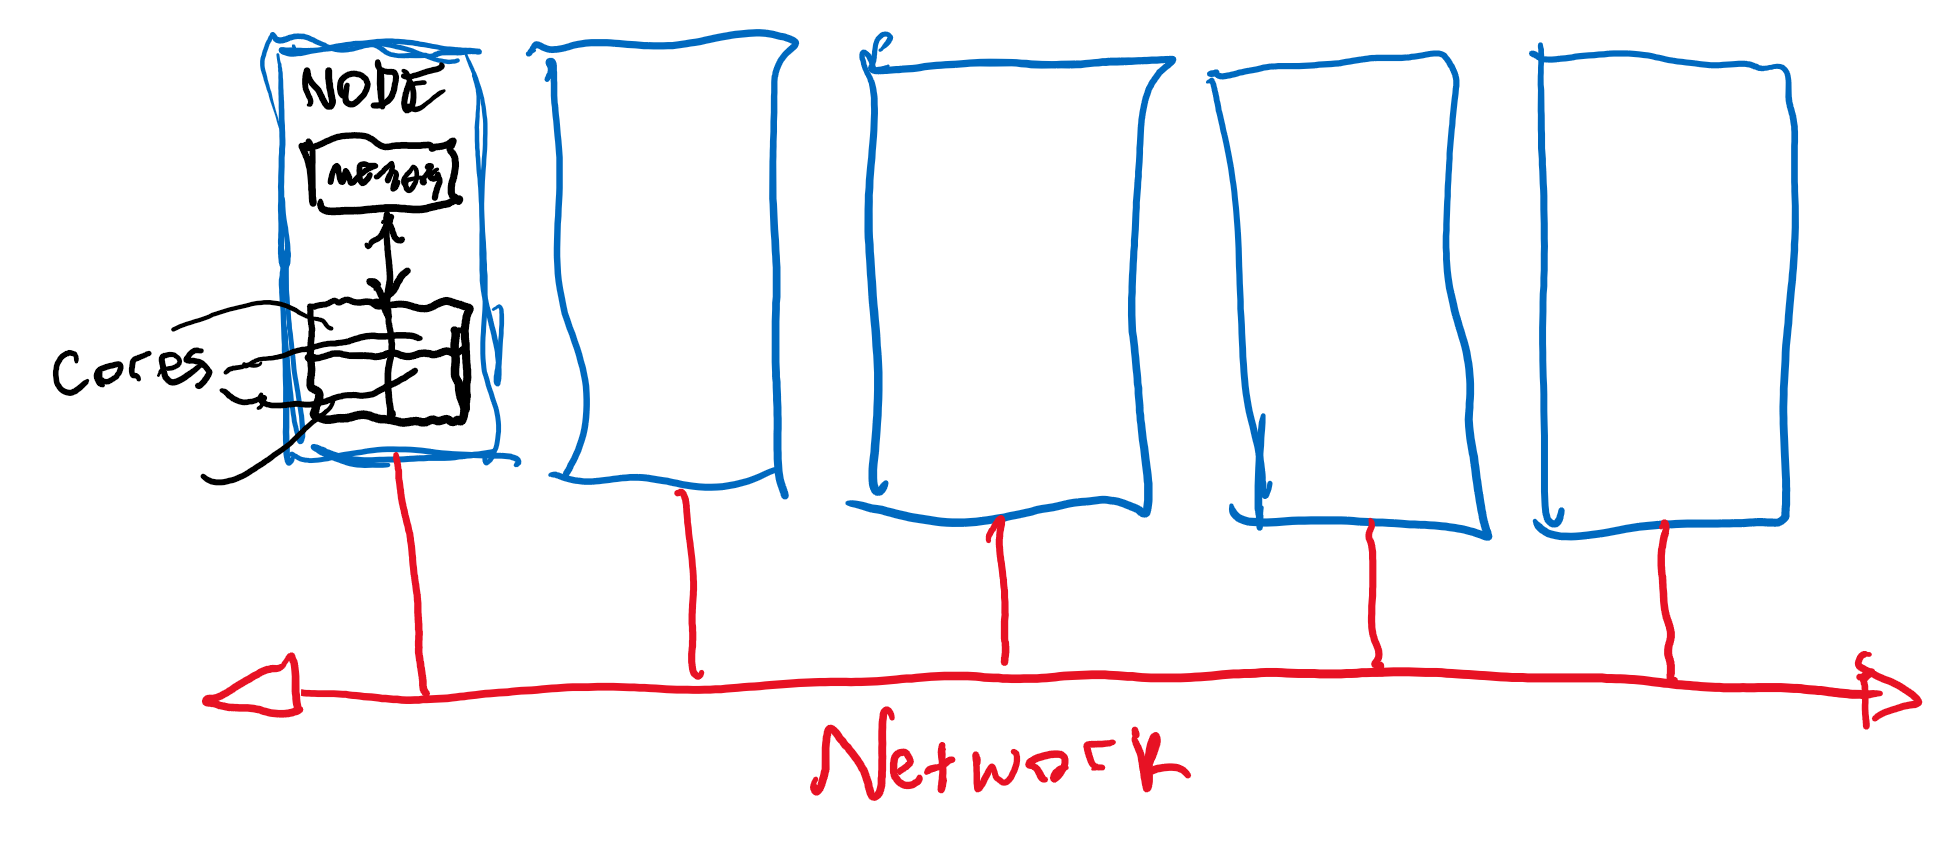 NODE
MEMORY
Cores
Network